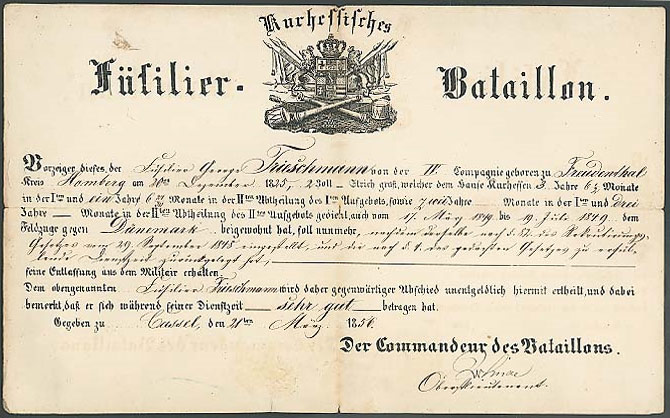 Kurhessisches
Füsilier- Bataillon.
Vorzeiger dieses, der Füsilier George Früschmann von der IV. Compagnie geboren zu Freudenthal
Kreis Homberg am 20ten Dezember 1825, 2 Zoll Strich groß, welcher dem Hause Kurhessen 3 Jahre 6 Monate
in der Iten und ein Jahre Monate in der IIten Abtheilung des Iten Aufgebots, sowie zwei Jahre — Monate in der Iten und Drei
Jahre — Monate in der IIten Abtheilung des IIten Aufgebots gedient, auch vom 17. März 1849 bis 19. Juli 1849. dem
Feldzuge gegen Dänemark beigewohnt hat, soll nunmehr, nachdem derselbe nach §. des Rekrutirungs-
Gesetzes vom 29. September 1848 eingestellt, und die nach §. 1. des gedachten Gesetzes zu
Dienstzeit zurückgelegt hat,
seine Entlassung aus dem Militair erhalten.
Dem obengenannten Füsilier Früschmann wird daher gegenwärtiger Abschied unentgeldlich hiermit ertheilt, und dabei
bemerkt, daß er sich während seiner Dienstzeit sehr gut betragen hat.
Gegeben zu Cassel, den 21ten März 1856.
Der Commandeur des Bataillons.
Oberstlieutenant.